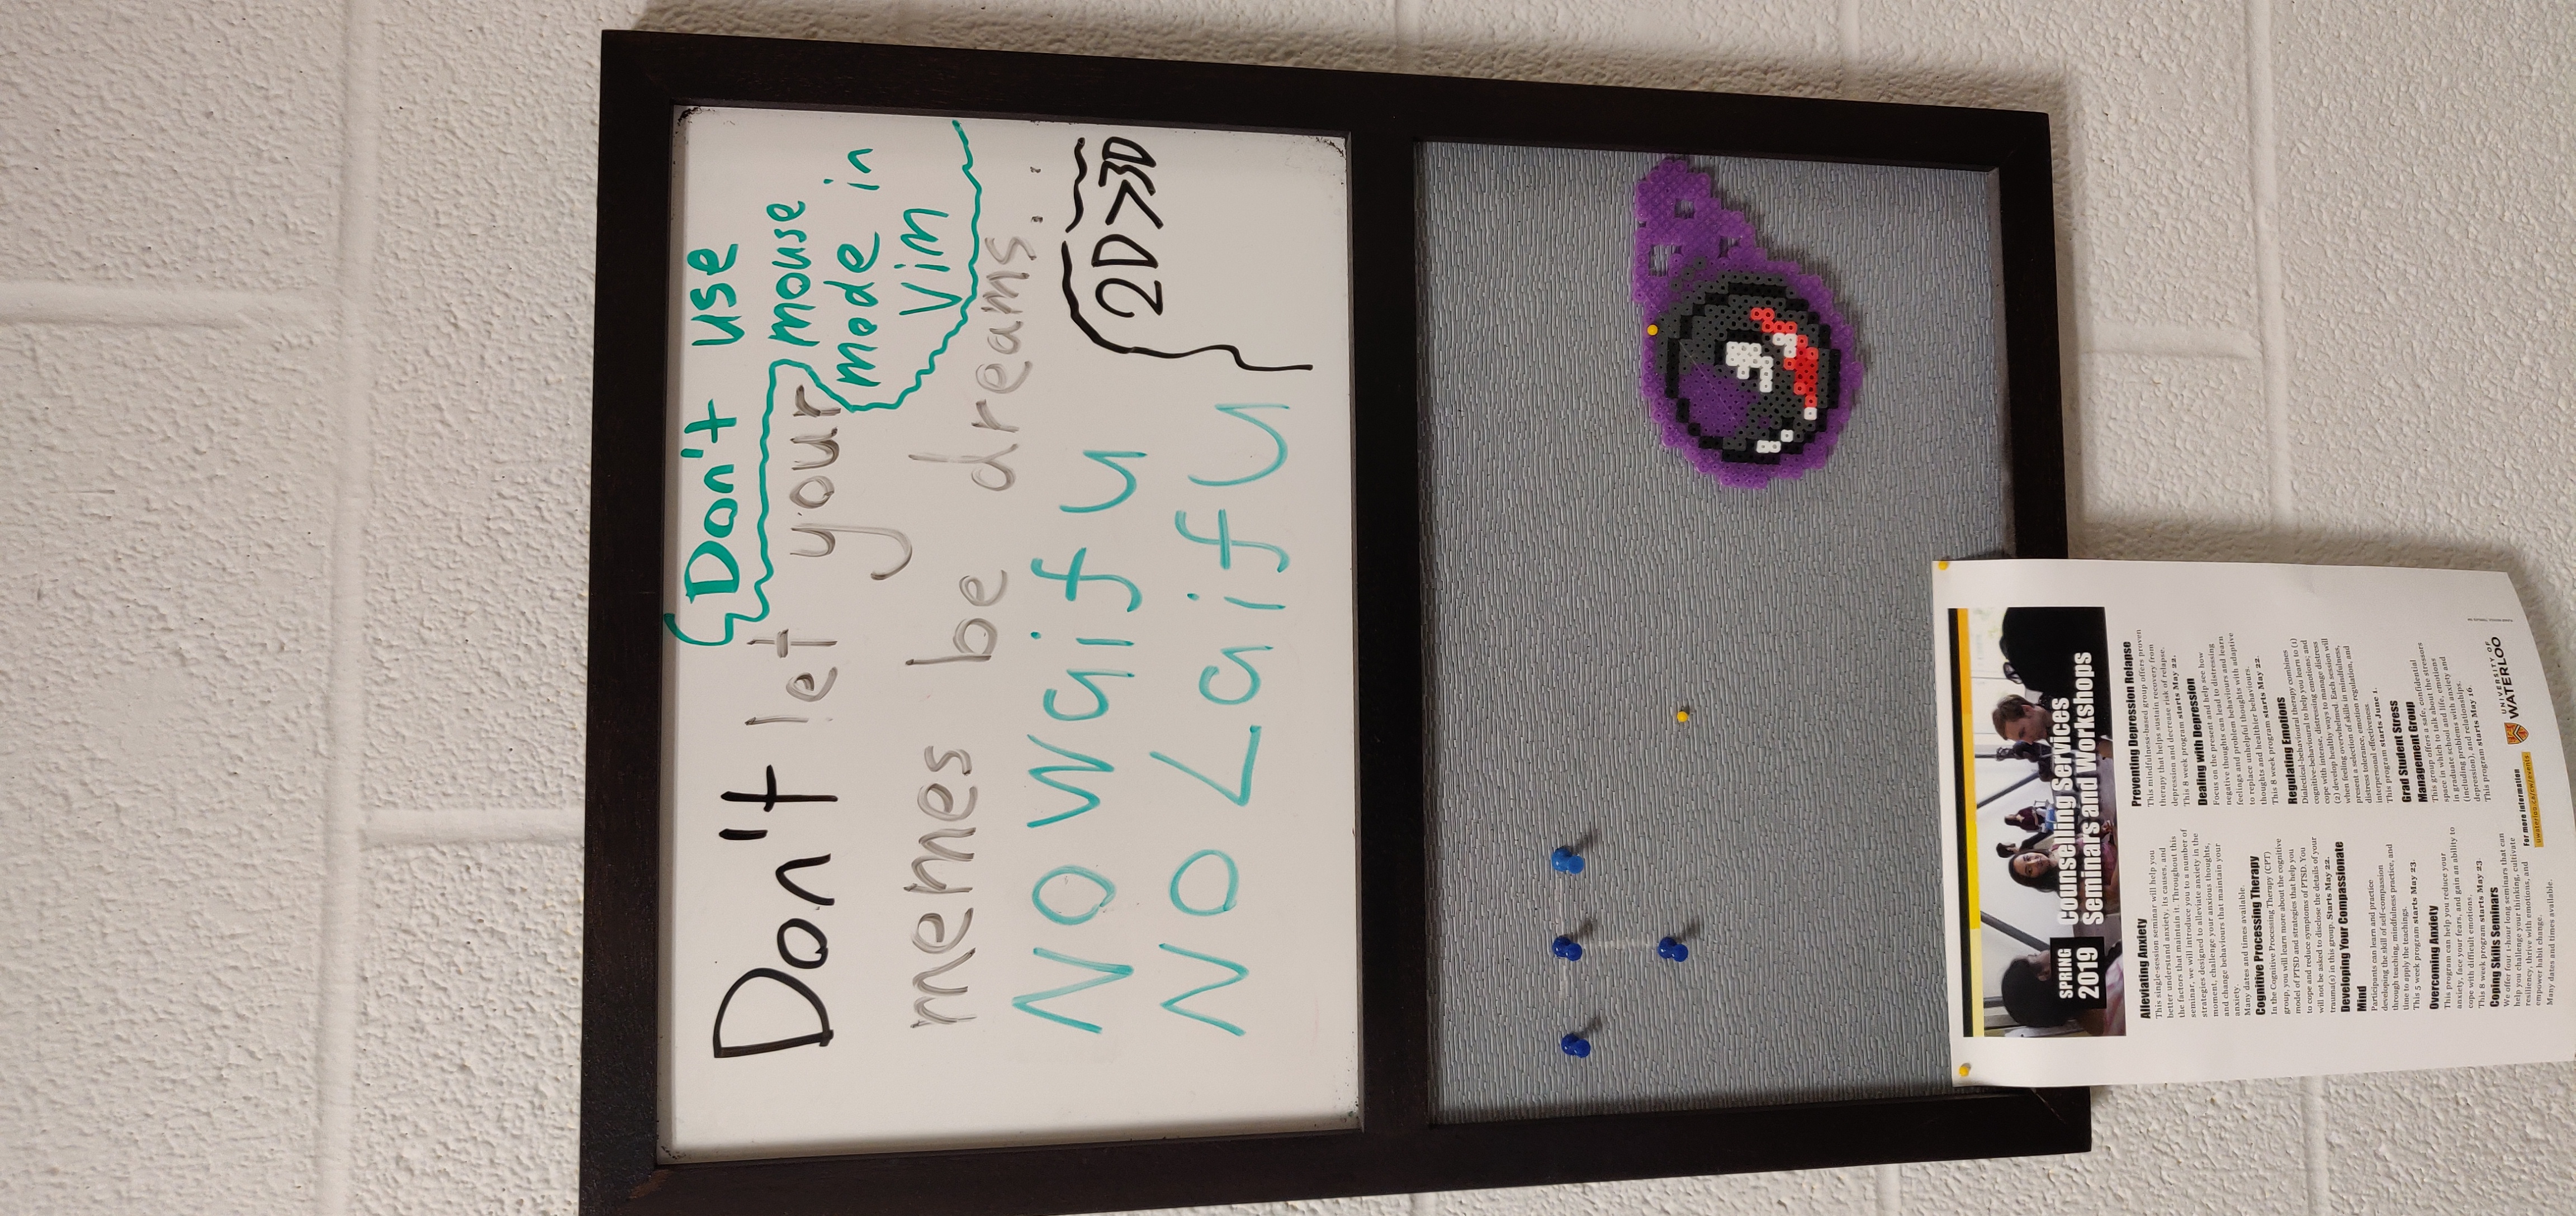 Don't let your
memes be dreams...
Don't use
mouse
mode in
Vim
No Waifu
No Laifu
2D>3D
SPRING
2019
Counselling Services
Seminars and Workshops
Alleviating Anxiety
This single-session seminar will help you
better understand anxiety, its causes, and
the factors that maintain it. Throughout this
seminar, we will introduce you to a number of
strategies designed to alleviate anxiety in the
moment, challenge your anxious thoughts,
and change behaviours that maintain your
anxiety.
Many dates and times available.
Cognitive Processing Therapy
In the Cognitive Processing Therapy (CPT)
group, you will learn more about the cognitive
model of PTSD and strategies that help you
to cope and reduce symptoms of PTSD. You
will not be asked to disclose the details of your
trauma(s) in this group. Starts May 22.
Developing Your Compassionate
Mind
Participants can learn and practice
developing the skill of self-compassion
through teaching, mindfulness practice, and
time to apply the teachings.
This 5 week program starts May 23.
Overcoming Anxiety
This program can help you reduce your
anxiety, face your fears, and gain an ability to
cope with difficult emotions.
This 8 week program starts May 23.
Coping Skills Seminars
We offer four 1-hour long seminars that can
help you challenge your thinking, cultivate
resiliency, thrive with emotions, and
empower habit change.
Many dates and times available.
Preventing Depression Relapse
This mindfulness-based group offers proven
therapy that helps sustain recovery from
depression and decrease risk of relapse.
This 8 week program starts May 22.
Dealing with Depression
Focus on the present and help see how
negative thoughts can lead to distressing
feelings and problem behaviours and learn
to replace unhelpful thoughts with adaptive
thoughts and healthier behaviours.
This 8 week program starts May 22.
Regulating Emotions
Dialectical-behavioural therapy combines
cognitive-behavioural to help you learn to (1)
cope with intense, distressing emotions; and
(2) develop healthy ways to manage distress
when feeling overwhelmed. Each session will
present a selection of skills in mindfulness,
distress tolerance, emotion regulation, and
interpersonal effectiveness.
This program starts June 1.
Grad Student Stress
Management Group
This group offers a safe, confidential
space in which to talk about the stressors
in graduate school and life, emotions
(including problems with anxiety and
depression), and relationships.
This program starts May 16.
For more information
uwaterloo.ca/cw/events
UNIVERSITY OF
WATERLOO